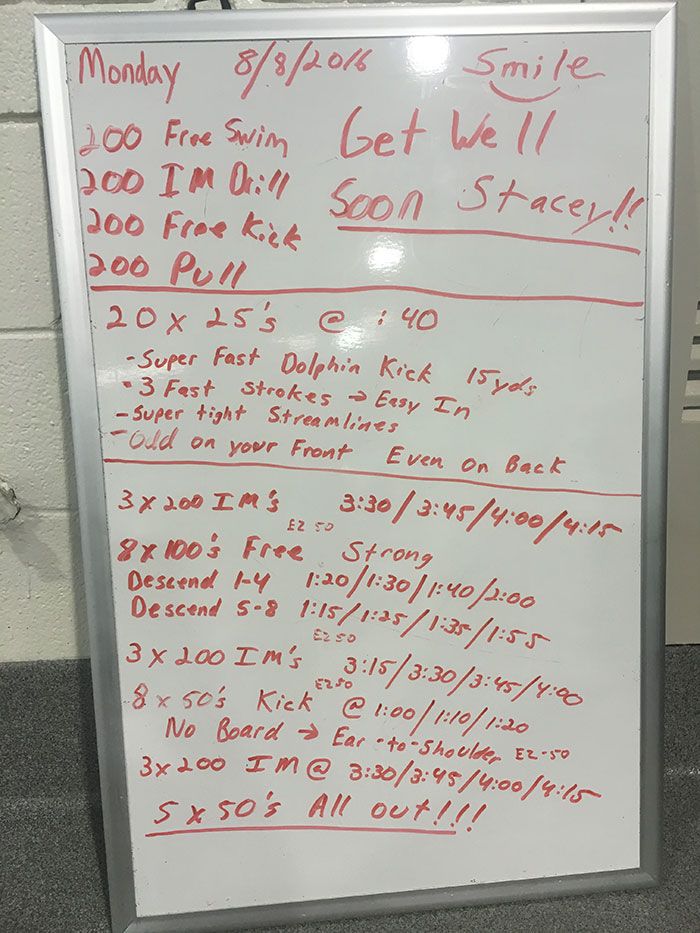 Monday 8/8/2016 Smile
200 Free Swim Get Well
200 IM Drill Soon Stacey!!
200 Free Kick
200 Pull
20 x 25's @ :40
- Super Fast Dolphin Kick 15yds
- 3 Fast Strokes → Easy In
- Super tight Streamlines
- Odd on your Front Even on Back
3 x 200 IM's 3:30/3:45/4:00/4:15
EZ 50
8x100's Free Strong
Descend 1-4 1:20/1:30/1:40/2:00
Descend 5-8 1:15/1:25/1:35/1:55
EZ 50
3 x 200 IM's 3:15/3:30/3:45/4:00
EZ 50
8 x 50's Kick @ 1:00/1:10/1:20
No Board → Ear-to-Shoulder EZ-50
3x200 IM @ 3:30/3:45/4:00/4:15
5 x 50's All out!!!